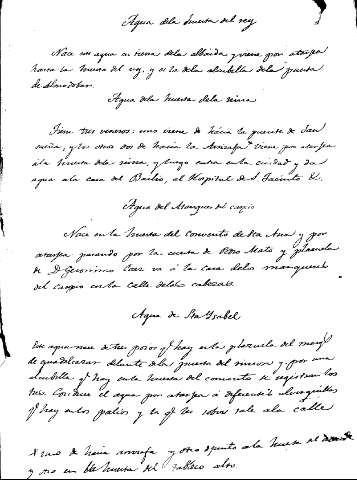 Agua dela huerta del rey
Nace su agua en tierra dela albaida y viene por atarjea
hasta la huerta del rey, y es la dela alcubilla dela puerta
de Almodobar.
Agua dela huerta dela reina
Tiene tres veneros: uno viene de hácia la puente de San
y los otros dos de hacia la Arrizafa viene por atarjea
ála huerta dela reina, y luego entra en la ciudad y da
agua a la casa del Bailio, al Hospital de S. Jacinto &.
Agua del Marques del carpio
Nace en la huerta del convento de Sta Ana y por
atarjea pasando por la cuesta de Pero Mato y plazuela
de D. Geronimo Paez va á la casa delos marqueses
del carpio en la calle delas cabezas.
Agua de Sta Ysabel
Este agua nace de tres pozos q.e hay en la plazuela del marq.s
de guadalcazar delante dela puerta del rincon y por una
alcubilla q.e hay en la huerta del convento se registran los
tres. Conduce el agua por atarjea á diferentes
q.e hay en los patios y la q.e les sobra sale ála calle
uno de hácia arrizafa y otro á la huerta
y otro en la huerta del tablero alto.